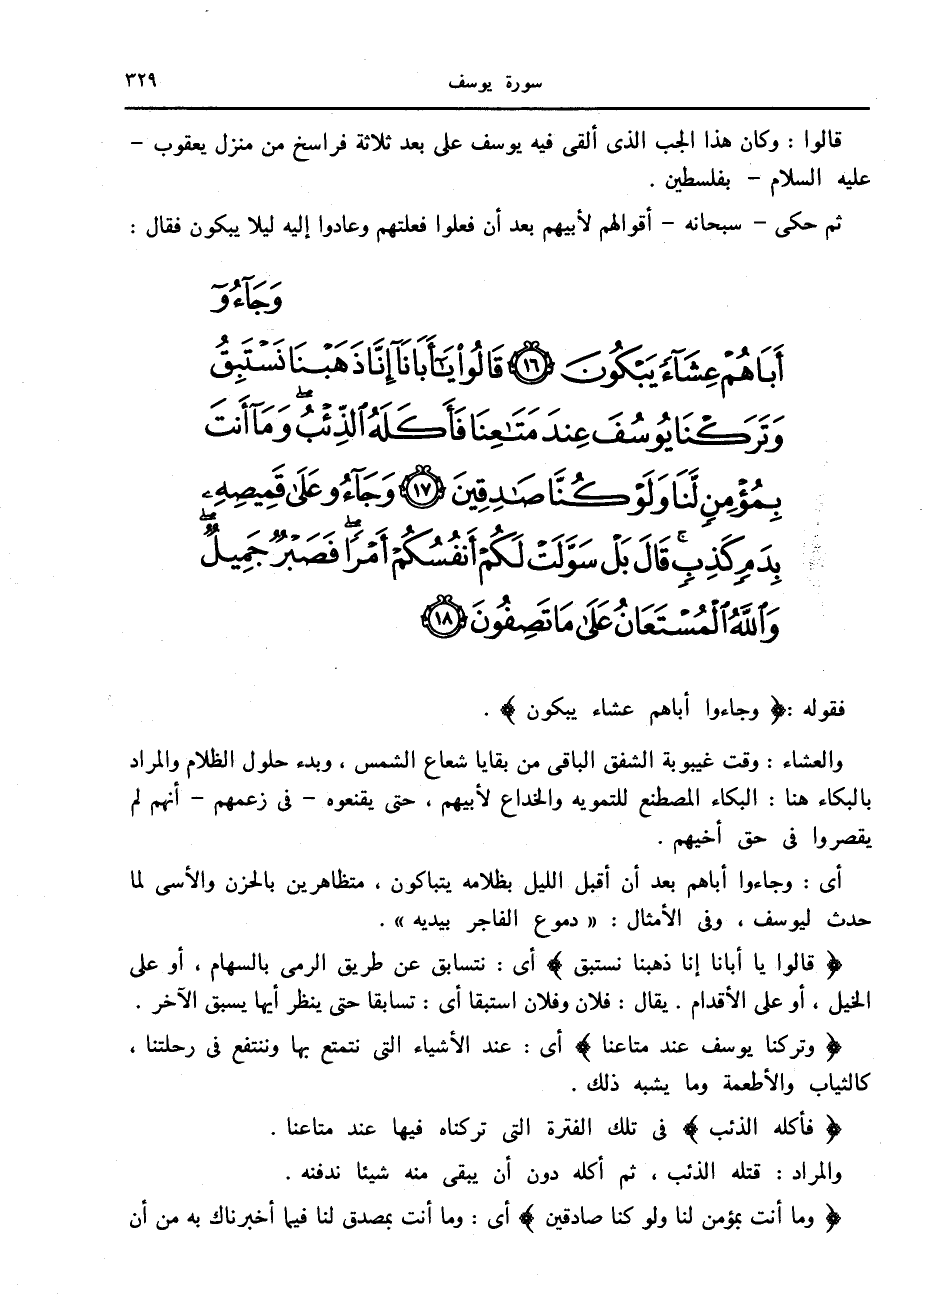 سورة يوسف ٣٢٩
قالوا : وكان هذا الجب الذى ألقى فيه يوسف على بعد ثلاثة فراسخ من منزل يعقوب –
عليه السلام – بفلسطين .
ثم حكى – سبحانه – أقوالهم لأبيهم بعد أن فعلوا فعلتهم وعادوا إليه ليلا يبكون فقال :
وَجَآءُوٓ
أَبَاهُمْ عِشَآءً يَبْكُونَ ١٦ قَالُوا۟ يَٰٓأَبَانَآ إِنَّا ذَهَبْنَا نَسْتَبِقُ
وَتَرَكْنَا يُوسُفَ عِندَ مَتَٰعِنَا فَأَكَلَهُ ٱلذِّئْبُ ۖ وَمَآ أَنتَ
بِمُؤْمِنٍ لَّنَا وَلَوْ كُنَّا صَٰدِقِينَ ١٧ وَجَآءُو عَلَىٰ قَمِيصِهِۦ
بِدَمٍ كَذِبٍ ۚ قَالَ بَلْ سَوَّلَتْ لَكُمْ أَنفُسُكُمْ أَمْرًا ۖ فَصَبْرٌ جَمِيلٌ ۖ
وَٱللَّهُ ٱلْمُسْتَعَانُ عَلَىٰ مَا تَصِفُونَ ١٨
فقوله : ﴿ وجاءوا أباهم عشاء يبكون ﴾ .
والعشاء : وقت غيبوبة الشفق الباقى من بقايا شعاع الشمس ، وبدء حلول الظلام والمراد
بالبكاء هنا : البكاء المصطنع للتمويه والخداع لأبيهم ، حتى يقنعوه – فى زعمهم – أنهم لم
يقصروا فى حق أخيهم .
أى : وجاءوا أباهم بعد أن أقبل الليل بظلامه يتباكون ، متظاهرين بالحزن والأسى لما
حدث ليوسف ، وفى الأمثال : « دموع الفاجر بيديه » .
﴿ قالوا يا أبانا إنا ذهبنا نستبق ﴾ أى : نتسابق عن طريق الرمى بالسهام ، أو على
الخيل ، أو على الأقدام . يقال : فلان وفلان استبقا أى : تسابقا حتى ينظر أيها يسبق الآخر .
﴿ وتركنا يوسف عند متاعنا ﴾ أى : عند الأشياء التى نتمتع بها وننتفع فى رحلتنا ،
كالثياب والأطعمة وما يشبه ذلك .
﴿ فأكله الذئب ﴾ فى تلك الفترة التى تركناه فيها عند متاعنا .
والمراد : قتله الذئب ، ثم أكله دون أن يبقى منه شيئا ندفنه .
﴿ وما أنت بمؤمن لنا ولو كنا صادقين ﴾ أى : وما أنت بمصدق لنا فيما أخبرناك به من أن